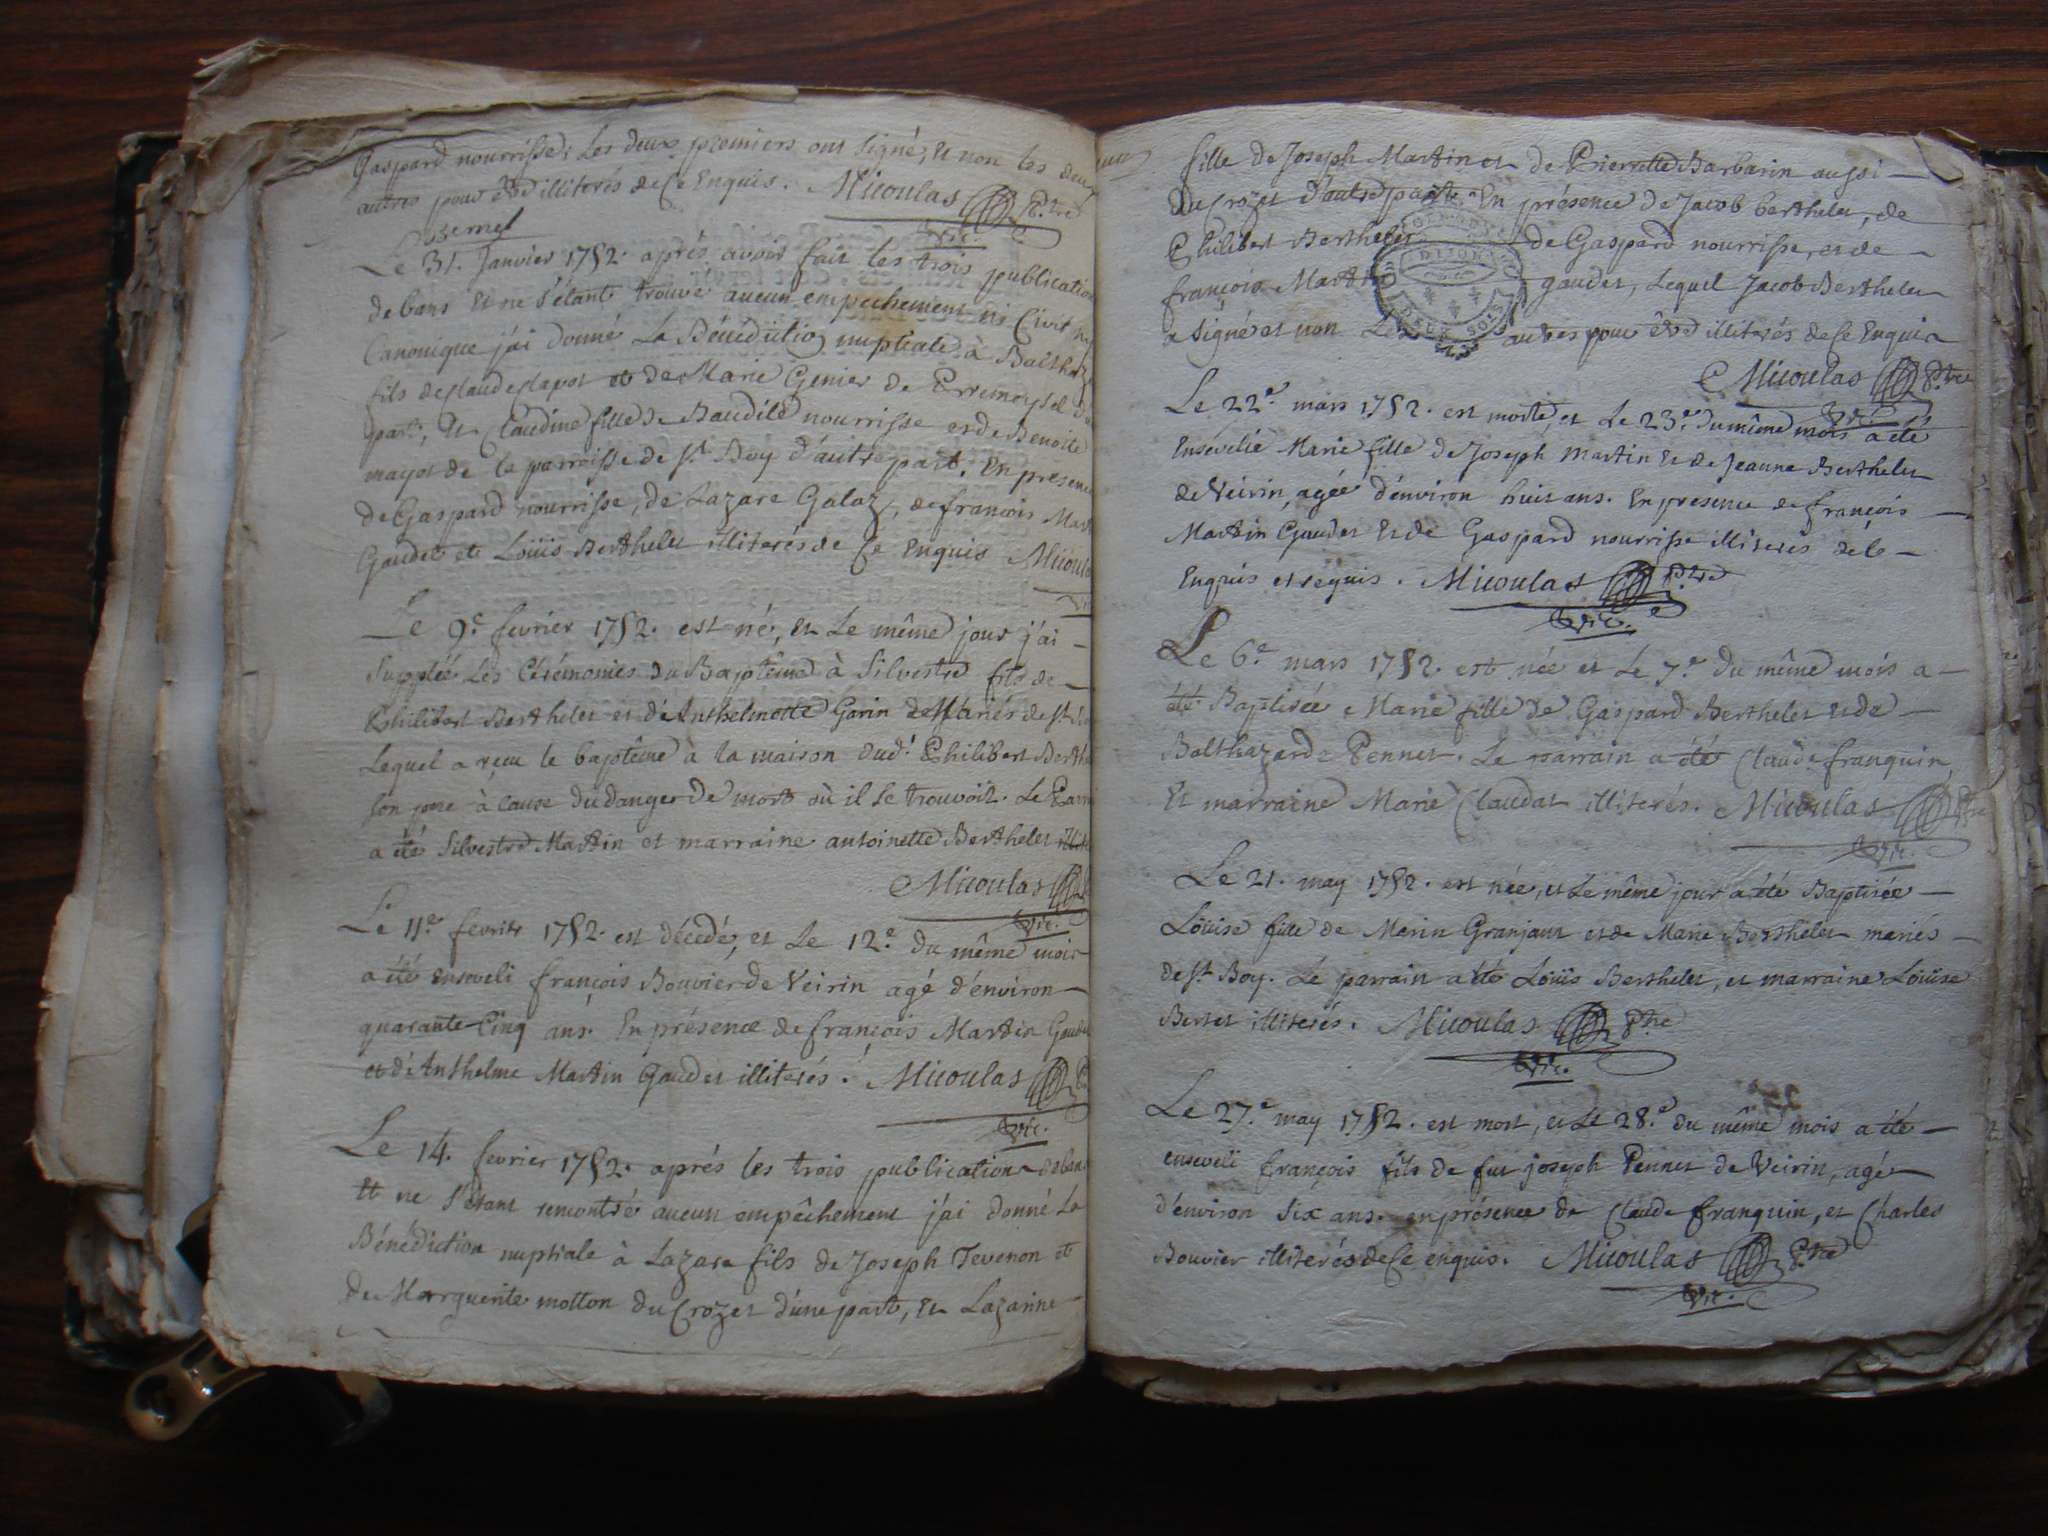 Gaspard nourrisse; Les deux premiers ont signé, et non les deux
autres pour être illiterés de ce Enquis. Micoulas P.tre
vic.
Le 31. Janvier 1752. aprés avoir fait les trois publication
de bans et ne s'étant trouvé aucun empechement ni Civil ni
Canonique j'ai donné La Bénédiction nuptiale à Balthaz
fils de Claude Clapot et de Marie Genier de d'u
part, Et Claudine fille de Baudile nourrisse et de Benoite
mayot de la parroisse de St. Boy d'autre part. En presence
de Gaspard nourrisse, de Lazare Galaz, de françois Mart
Gaudet et Loüis Berthelet illiterés de ce Enquis Micoul
Le 9.e fevrier 1752. est né, Et Le même jour j'ai
Supplée Les Cérémonies du Baptême à Silvestre fils de
Philibert Berthelet et d'Anthelmette Garin Mariés de St.
Lequel a reçu le baptême à la maison dud.t Philibert Berth
son pere à cause du danger de mort où il se trouvoit. Le Parr
a été Silvestre Martin et marraine antoinette Berthelet illit
Micoulas
vic.
Le 11.e fevrier 1752. est décedé, et Le 12.e du même mois
a été enseveli françois Bouvier de Veirin agé d'environ
quarante Cinq ans. En présence de françois Martin Gaudet
et d'Anthelme Martin Gaudet illiterés. Micoulas P.
vic.
Le 14. fevrier 1752. aprés les trois publication de bans
Et ne s'étant remontré aucun empêchement j'ai donné La
Bénédiction nuptiale à Lazare fils de Joseph Tevenon et
de Marguerite motton du Crozet d'une part, Et Lazarine
fille de Joseph Martin et de Pierrette Barbarin aussi
du Crozet d'autre part En présence de Jacob berthelet, de
Philibert Berthelet de Gaspard nourrisse, et de
françois Martin gaudet, Lequel Jacob Berthelet
a signé et non Les autres pour être illiterés de ce Enquis
DIJON
DEUX SOLS
Micoulas P.tre
vic.
Le 22.e mars 1752. est morte, et Le 23.e du même mois a été
Ensevelie Marie fille de Joseph Martin Et de Jeanne Berthelet
de Veirin, agée d'environ huit ans. En presence de françois
Martin Gaudet Et de Gaspard nourrisse illiterés de ce
Enquis et requis. Micoulas P.tre
vic.
Le 6.e mars 1752. est née et Le 7.e du même mois a
été Baptisée Marie fille de Gaspard Berthelet et de
Balthazarde Pennet. Le parrain a été Claude franquin
Et marraine Marie Claudat illiterés. Micoulas P.tre
vic.
Le 21. may 1752. est née, et Le même jour a été Baptisée
Loüise fille de Marin Granjant et de Marie Berthelet mariés
de St. Boy. Le parrain a été Loüis Berthelet, et marraine Loüise
Bertet illiterés. Micoulas P.tre
vic.
Le 27.e may 1752. est mort, et Le 28.e du même mois a été
enseveli françois fils de fut joseph Pennet de Veirin, agé
d'environ six ans. en présence de Claude franquin, et Charles
Bouvier illiterés de ce enquis. Micoulas P.tre
vic.